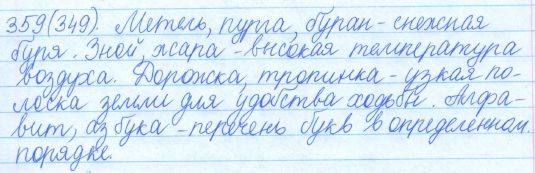 359(349). Метель, пурга, буран - снежная
буря. Зной, жара - высокая температура
воздуха. Дорожка, тропинка - узкая по-
лоска земли для удобства ходьбы. Алфа-
вит, азбука - перечень букв в определённом
порядке.